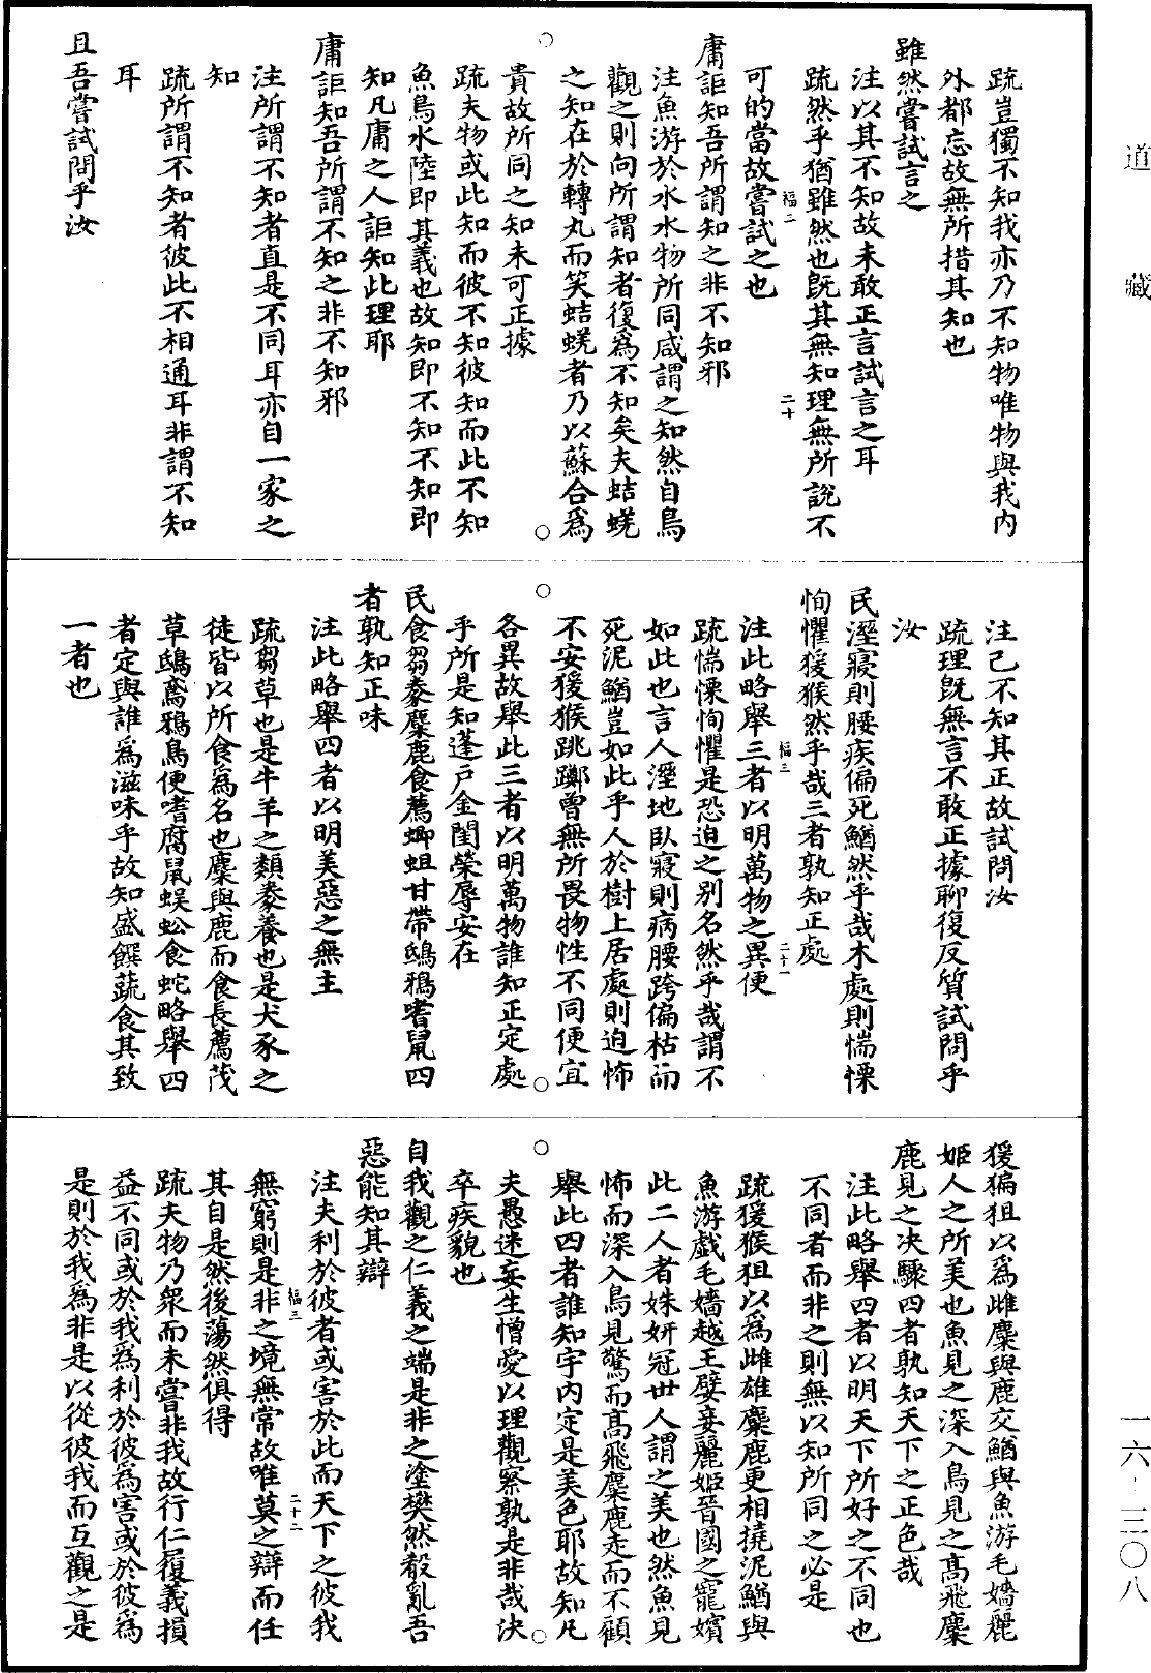 道藏
疏豈獨不知我亦乃不知物唯物與我内
外都忘故無所措其知也
雖然嘗試言之
注以其不知故未敢正言試言之耳
疏然乎猶雖然也旣其無知理無所說不
福二
二十
可的當故嘗試之也
庸詎知吾所謂知之非不知邪
注魚游於水水物所同咸謂之知然自鳥
觀之則向所謂知者復為不知矣夫蛣蜣
之知在於轉丸而笑蛣蜣者乃以蘇合為
貴故所同之知未可正據
疏夫物或此知而彼不知彼知而此不知
魚鳥水陸即其義也故知即不知不知即
知凡庸之人詎知此理耶
庸詎知吾所謂不知之非不知邪
注所謂不知者直是不同耳亦自一家之
知
疏所謂不知者彼此不相通耳非謂不知
耳
且吾嘗試問乎汝
注己不知其正故試問汝
疏理旣無言不敢正據聊復反質試問乎
汝
民溼寢則腰疾偏死鰌然乎哉木處則惴慄
恂懼猨猴然乎哉三者孰知正處
福三
二十一
注此略舉三者以明萬物之異便
疏惴慄恂懼是恐迫之别名然乎哉謂不
如此也言人溼地臥寢則病腰跨偏枯而
死泥鰌豈如此乎人於樹上居處則迫怖
不安猨猴跳躑曾無所畏物性不同便宜
各異故舉此三者以明萬物誰知正定處
乎所是知蓬戶金閨榮辱安在
民食芻豢麋鹿食薦蝍蛆甘帶鴟鴉嗜鼠四
者孰知正味
注此略舉四者以明美惡之無主
疏芻草也是牛羊之類豢養也是犬豕之
徒皆以所食為名也麋與鹿而食長薦茂
草鴟鳶鴉鳥便嗜腐鼠蜈蚣食蛇略舉四
者定與誰為滋味乎故知盛饌蔬食其致
一者也
猨猵狙以為雌麋與鹿交鰌與魚游毛嬙麗
姬人之所美也魚見之深入鳥見之高飛麋
鹿見之决驟四者孰知天下之正色哉
注此略舉四者以明天下所好之不同也
不同者而非之則無以知所同之必是
疏猨猴狙以為雌雄麋鹿更相撓泥鰌與
魚游戲毛嬙越王嬖妾麗姬晉國之寵嬪
此二人者姝妍冠世人謂之美也然魚見
怖而深入鳥見驚而高飛麋鹿走而不顧
舉此四者誰知宇内定是美色耶故知凡
夫愚迷妄生憎愛以理觀察孰是非哉決
卒疾貌也
自我觀之仁義之端是非之塗樊然殽亂吾
惡能知其辯
注夫利於彼者或害於此而天下之彼我
無窮則是非之境無常故唯莫之辯而任
福三
二十二
其自是然後蕩然俱得
疏夫物乃衆而未嘗非我故行仁履義損
益不同或於我為利於彼為害或於彼為
是則於我為非是以從彼我而互觀之是
一六-三〇八